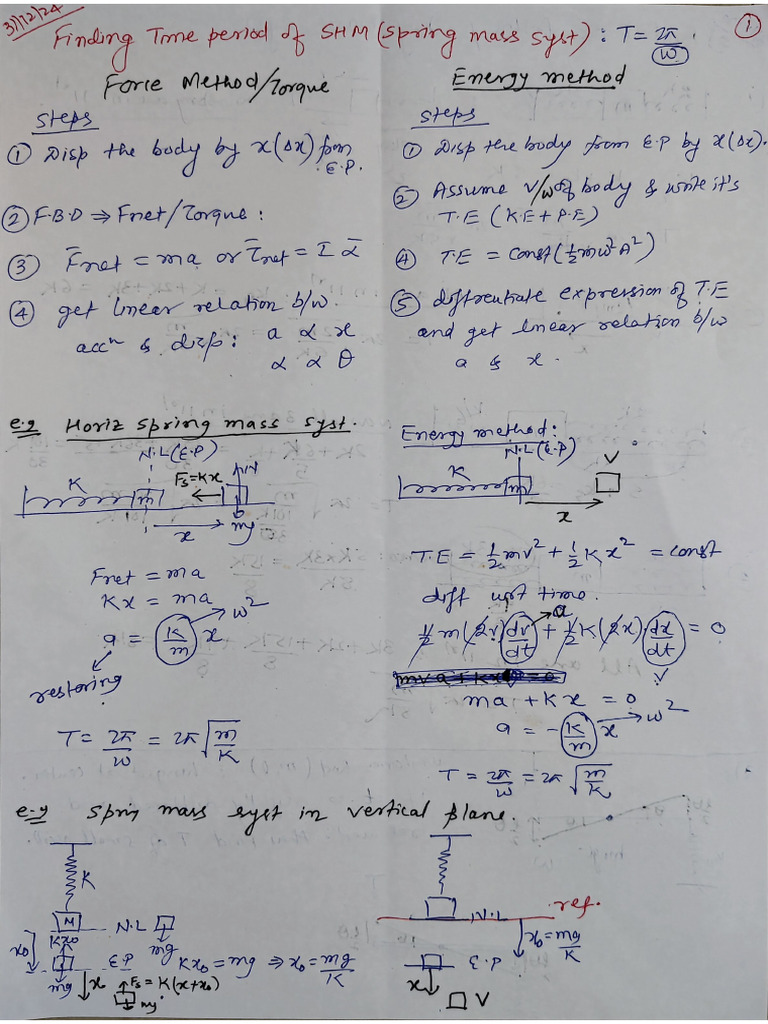 31/12/24
Finding Time period of SHM (spring mass syst) : T = 2π/ω .
①
Force Method/Torque
Steps
① Disp the body by x(Δx) from E.P.
② F.B.D ⇒ Fnet/Torque :
③ F̄net = ma or τ̄net = I ᾱ
④ get linear relation b/w
accⁿ & disp : a α x
α α θ
Energy method
steps
① Disp the body from E.P by x(Δx).
② Assume v/ω of body & write it's
T.E (K.E + P.E)
④ T.E = const (½mω²A²)
⑤ diffrentiate expression of T.E
and get linear relation b/w
a & x .
e.g Horiz spring mass syst.
N.L(E.P)
K
m
Fs=Kx
N
x
mg
Fnet = ma
Kx = ma
a = (K/m) x
ω²
restoring
T = 2π/ω = 2π√(m/K)
Energy method:
N.L(E.P)
K
m
V
x
T.E = ½mv² + ½Kx² = const
diff wrt time.
½m(2v)(dv/dt) + ½K(2x)(dx/dt) = 0
a
v
mva + Kxv = 0
ma + Kx = 0
a = -(K/m) x
ω²
T = 2π/ω = 2π√(m/K)
e.g Sprin mass syst in vertical plane.
K
M
N.L
mg
Kx₀
x₀
E.P
mg
Kx₀ = mg ⇒ x₀ = mg/K
x
Fs = K(x+x₀)
mg
N.L
ref.
x₀ = mg/K
E.P
x
V